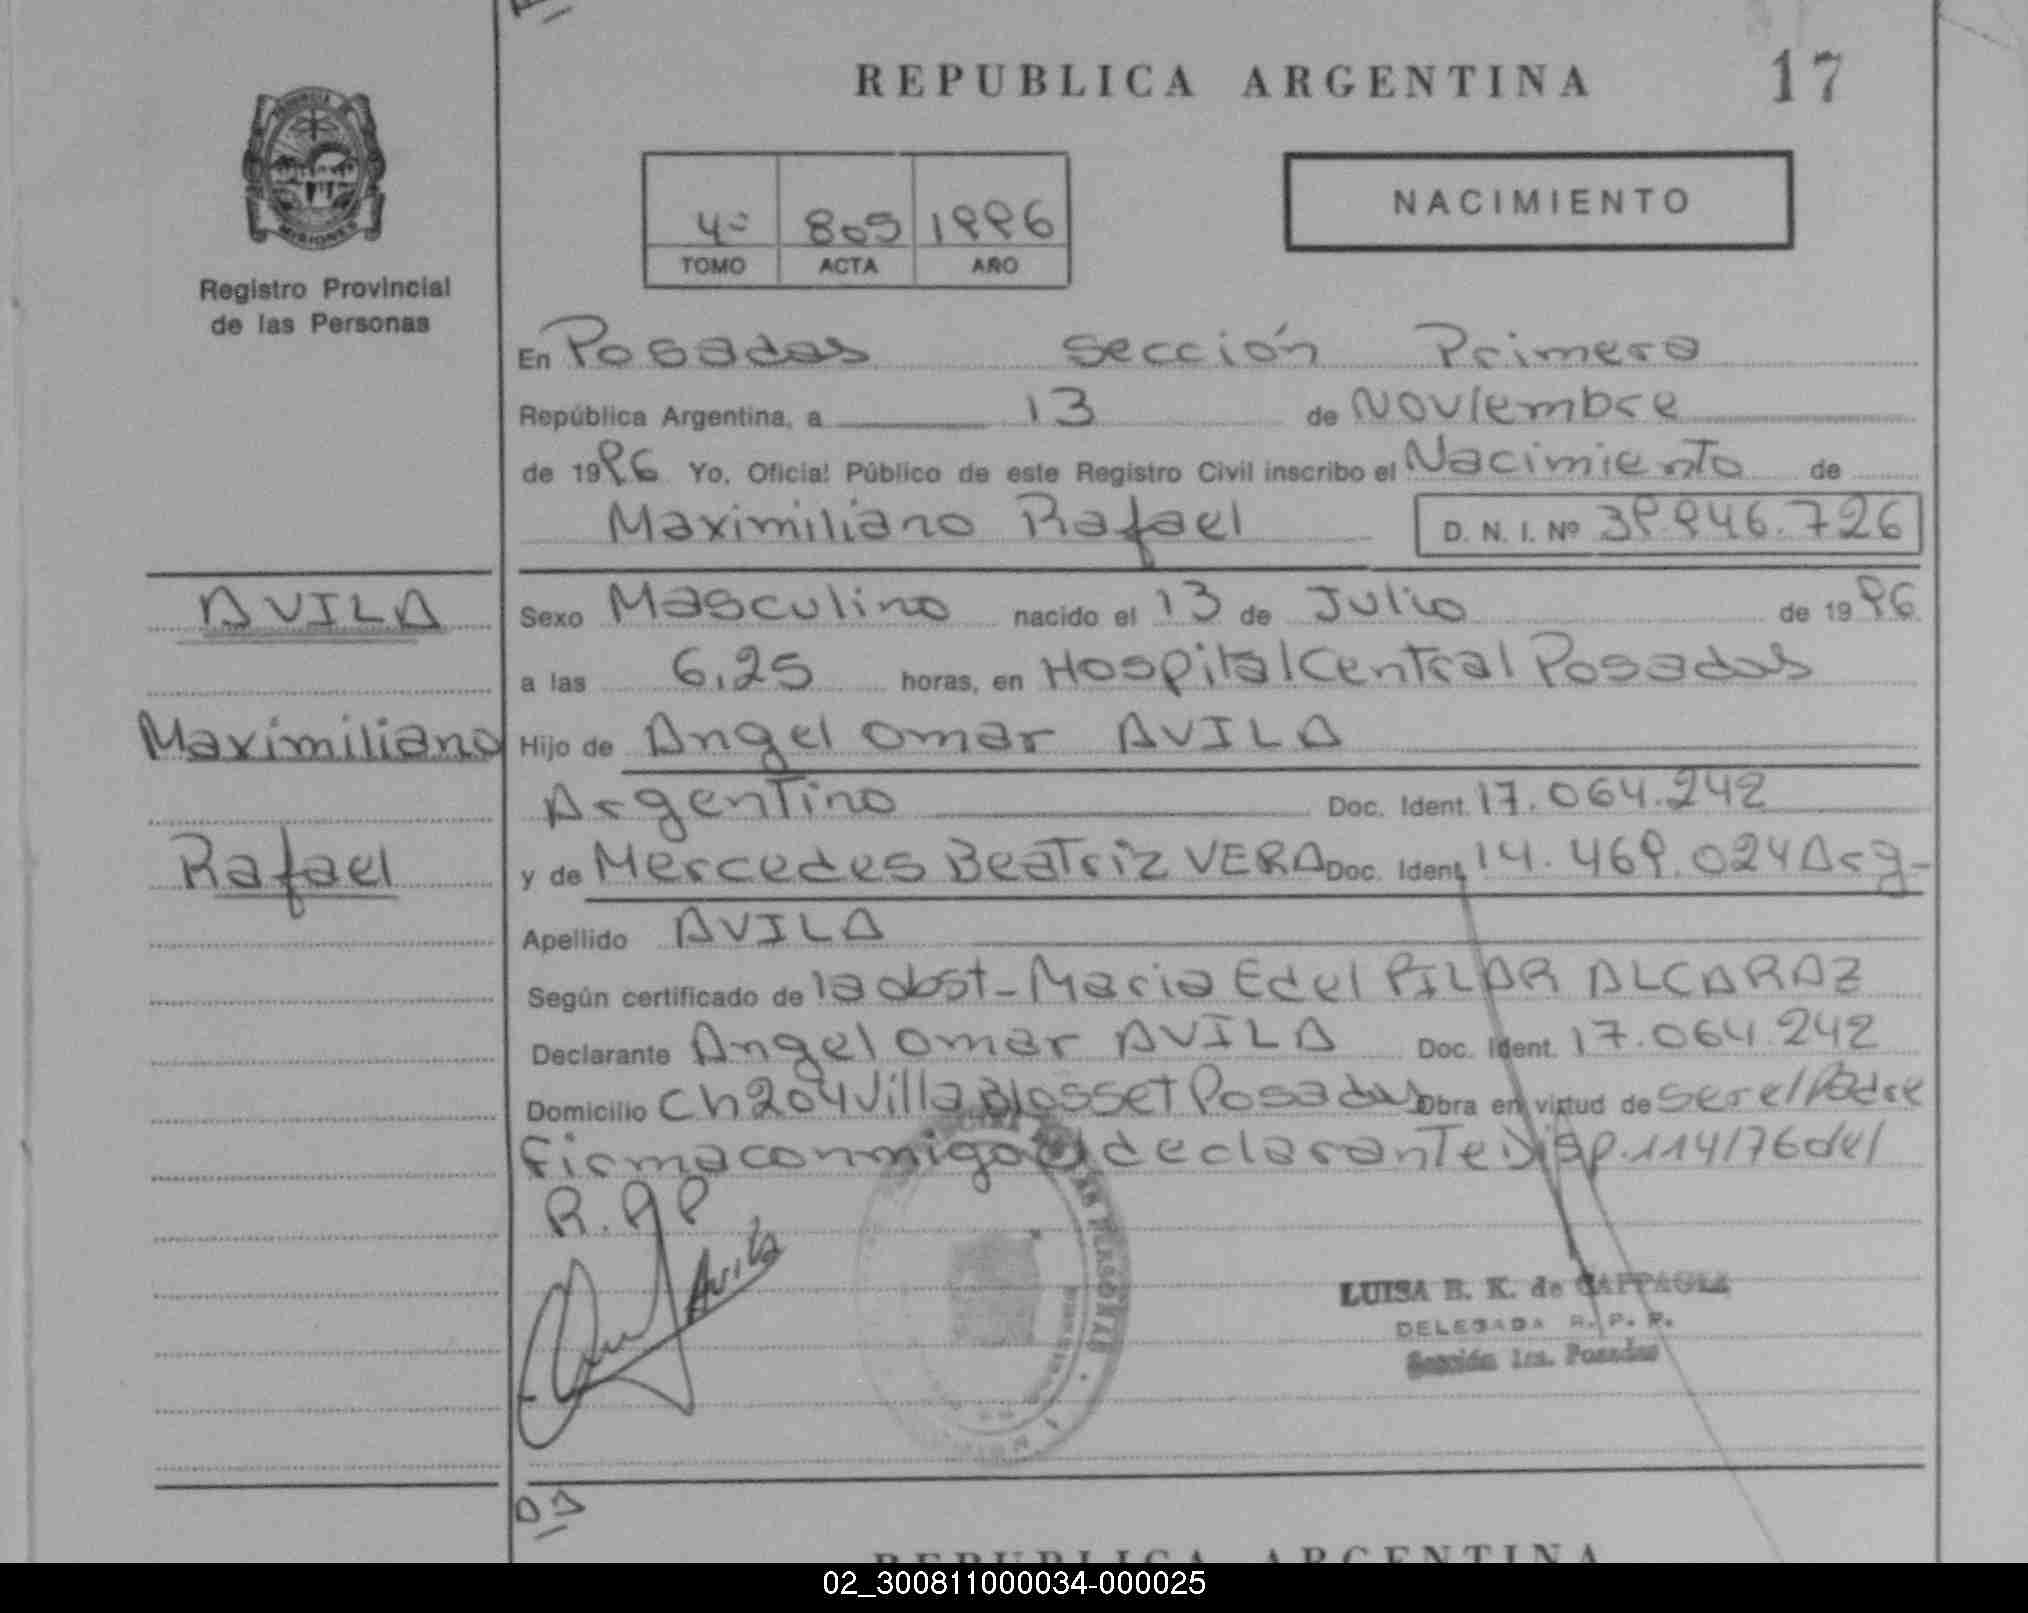 REPUBLICA ARGENTINA 17
MISIONES
Registro Provincial
de las Personas
NACIMIENTO
4º 809 1996
TOMO ACTA AÑO
En Posadas Sección Primera
República Argentina, a 13 de Noviembre
de 1996 Yo, Oficial Público de este Registro Civil inscribo el Nacimiento de
Maximiliano Rafael D. N. I. Nº 39.946.726
AVILA
Maximiliano
Rafael
Sexo Masculino nacido el 13 de Julio de 1996
a las 6,25 horas, en Hospital Central Posadas
Hijo de Angel Omar AVILA
Argentino Doc. Ident. 17.064.242
y de Mercedes Beatriz VERA Doc. Ident. 14.469.024 Arg-
Apellido AVILA
Según certificado de la obst- Maria Edel PILAR ALCARAZ
Declarante Angel Omar AVILA Doc. Ident. 17.064.242
Domicilio Ch 204 Villa Blosset Posadas Obra en virtud de ser el Padre
Firma conmigo el declarante Disp. 114/76 del
R.P.P
Avila
LUISA B. K. de CAPPAGLI
DELEGADA R. P. P.
Sección 1ra. Posadas
REPUBLICA ARGENTINA
02_300811000034-000025